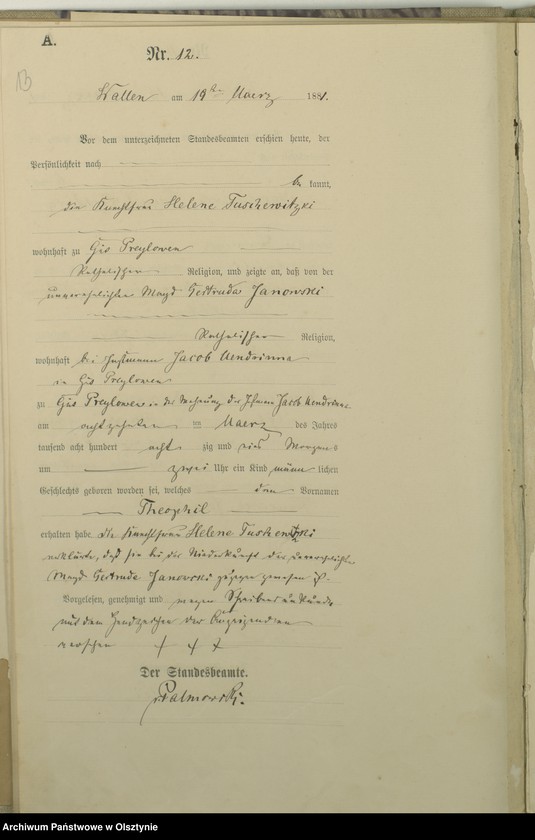 A.
Nr. 12.
13
Wallen am 19ten Maerz 1881.
Vor dem unterzeichneten Standesbeamten erschien heute, der
Persönlichkeit nach
be kannt,
die Knechtfrau Helene Tuschewitzki
wohnhaft zu Gut Preylowen
Katholischer Religion, und zeigte an, daß von der
unverehelichten Magd Gertruda Janowski
Katholischer Religion,
wohnhaft bei Jacob
in Gut Preylowen
zu Gut Preylowen in der Wohnung des Jacob
am achtzehnten Maerz des Jahres
tausend acht hundert acht zig und eins Morgens
um zwei Uhr ein Kind männ lichen
Geschlechts geboren worden sei, welches den Vornamen
Theophil
erhalten habe. die Knechtfrau Helene Tuschewitzki
erklärte, daß sie bei der Niederkunft der unverehelichten
Magd Gertrude Janowski zugegen gewesen ist.
Vorgelesen, genehmigt und wegen Schreibensunkunde
mit dem Handzeichen der Anzeigenden
versehen + + +
Der Standesbeamte.
Palmowski.
Archiwum Państwowe w Olsztynie